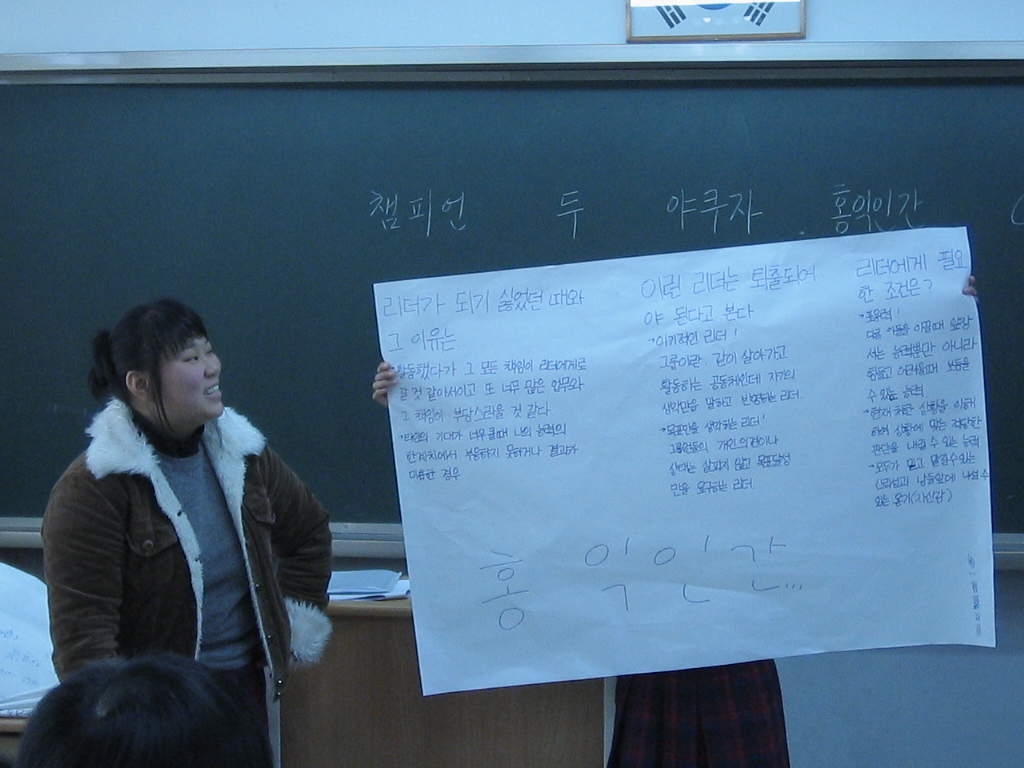 챔피언 두 야쿠자 홍익인간
리더가 되기 싫었던 때와
그 이유는
활동했다가 그 모든 책임이 리더에게로
올 것 같아서이고 또 너무 많은 업무와
그 책임이 부담스러울 것 같다
타인의 기대가 너무 클때 나의 능력의
한계치에서 부응하지 못하거나 결과가
미흡한 경우
이런 리더는 퇴출되어
야 된다고 본다
이기적인 리더!
그룹이란. 같이 살아가고
활동하는 공동체인데 자기의
생각만을 말하고 반영하는 리더.
목표만을 생각하는 리더!
그룹원들의 개인의견이나
상태는 살피지 않고 목표달성
만을 요구하는 리더
리더에게 필요
한 조건은?
포용력!
다른 이들을 이끌때 앞장
서는 능력뿐만 아니라
힘들고 어려울때 보듬을
수 있는 능력
현재 처한 상황을 이해
하여 상황에 맞는 적당한
판단을 내릴 수 있는 능력
모두가 믿고 맡길수있는
신뢰성과 남들앞에 나설 수
있는 용기(자신감)
홍익인간...